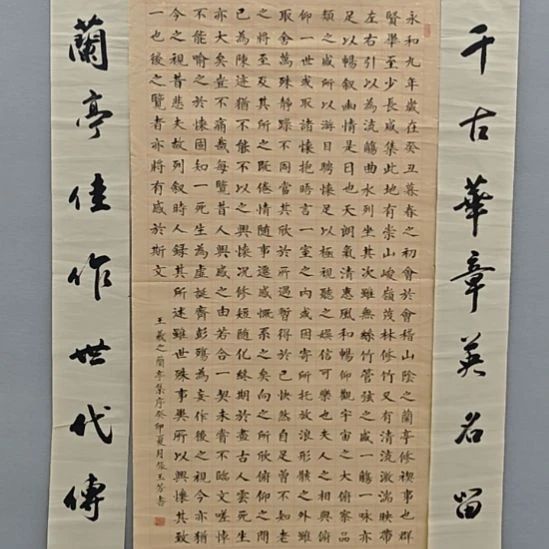 千古華章英名留
永和九年歲在癸丑暮春之初會於會稽山陰之蘭亭修禊事也群
賢畢至少長咸集此地有崇山峻嶺茂林修竹又有清流激湍映帶
左右引以為流觴曲水列坐其次雖無絲竹管弦之盛一觴一詠亦
足以暢叙幽情是日也天朗氣清惠風和暢仰觀宇宙之大俯察品
類之盛所以游目騁懷足以極視聽之娛信可樂也夫人之相與俯
仰一世或取諸懷抱晤言一室之内或因寄所托放浪形骸之外雖
取舍萬殊静躁不同當其欣於所遇暫得於己快然自足曾不知老
之將至及其所之既倦情隨事遷感慨系之矣向之所欣俯仰之間
已為陳迹猶不能不以之興懷况修短隨化終期於盡古人云死生
亦大矣豈不痛哉每覽昔人興感之由若合一契未嘗不臨文嗟悼
不能喻之於懷固知一死生為虛誕齊彭殤為妄作後之視今亦猶
今之視昔悲夫故列叙時人錄其所述雖世殊事異所以興懷其致
一也後之覽者亦將有感於斯文
王羲之蘭亭集序癸卯夏月張玉芳書
蘭亭佳作世代傳